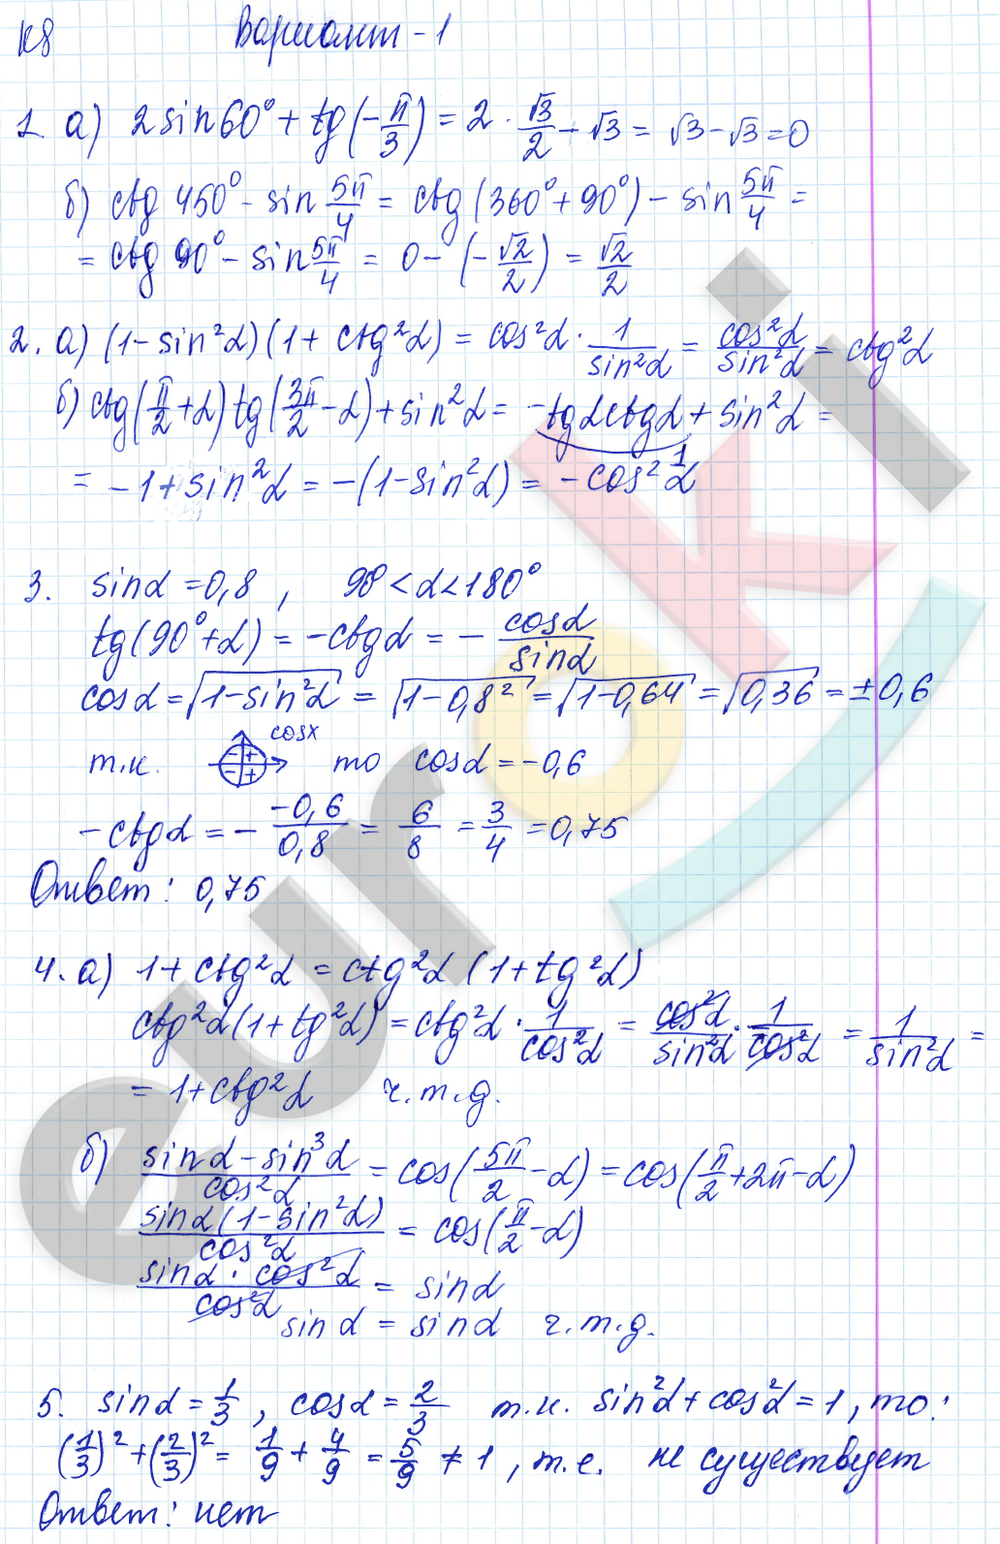 К8 Вариант - 1
1. а) 2 sin 60° + tg(-π/3) = 2 · √3/2 - √3 = √3 - √3 = 0
б) ctg 450° - sin 5π/4 = ctg (360° + 90°) - sin 5π/4 =
= ctg 90° - sin 5π/4 = 0 - (-√2/2) = √2/2
2. а) (1 - sin²α)(1 + ctg²α) = cos²α · 1/sin²α = cos²α/sin²α = ctg²α
б) ctg(π/2 + α) tg(3π/2 - α) + sin²α = -tgα ctgα + sin²α =
1
= -1 + sin²α = -(1 - sin²α) = -cos²α
3. sinα = 0,8 , 90° < α < 180°
tg(90° + α) = -ctgα = - cosα/sinα
cosα = √(1 - sin²α) = √(1 - 0,8²) = √(1 - 0,64) = √0,36 = ±0,6
cosx
т.к. - + - + то cosα = -0,6
-ctgα = - -0,6/0,8 = 6/8 = 3/4 = 0,75
Ответ: 0,75
4. а) 1 + ctg²α = ctg²α (1 + tg²α)
ctg²α(1 + tg²α) = ctg²α · 1/cos²α = cos²α/sin²α · 1/cos²α = 1/sin²α =
= 1 + ctg²α ч.т.д.
б) (sinα - sin³α)/cos²α = cos(5π/2 - α) = cos(π/2 + 2π - α)
sinα(1 - sin²α)/cos²α = cos(π/2 - α)
sinα · cos²α/cos²α = sinα
sinα = sinα ч.т.д.
5. sinα = 1/3 , cosα = 2/3 т.к. sin²α + cos²α = 1 , то:
(1/3)² + (2/3)² = 1/9 + 4/9 = 5/9 ≠ 1 , т.е. не существует
Ответ: нет
euroki